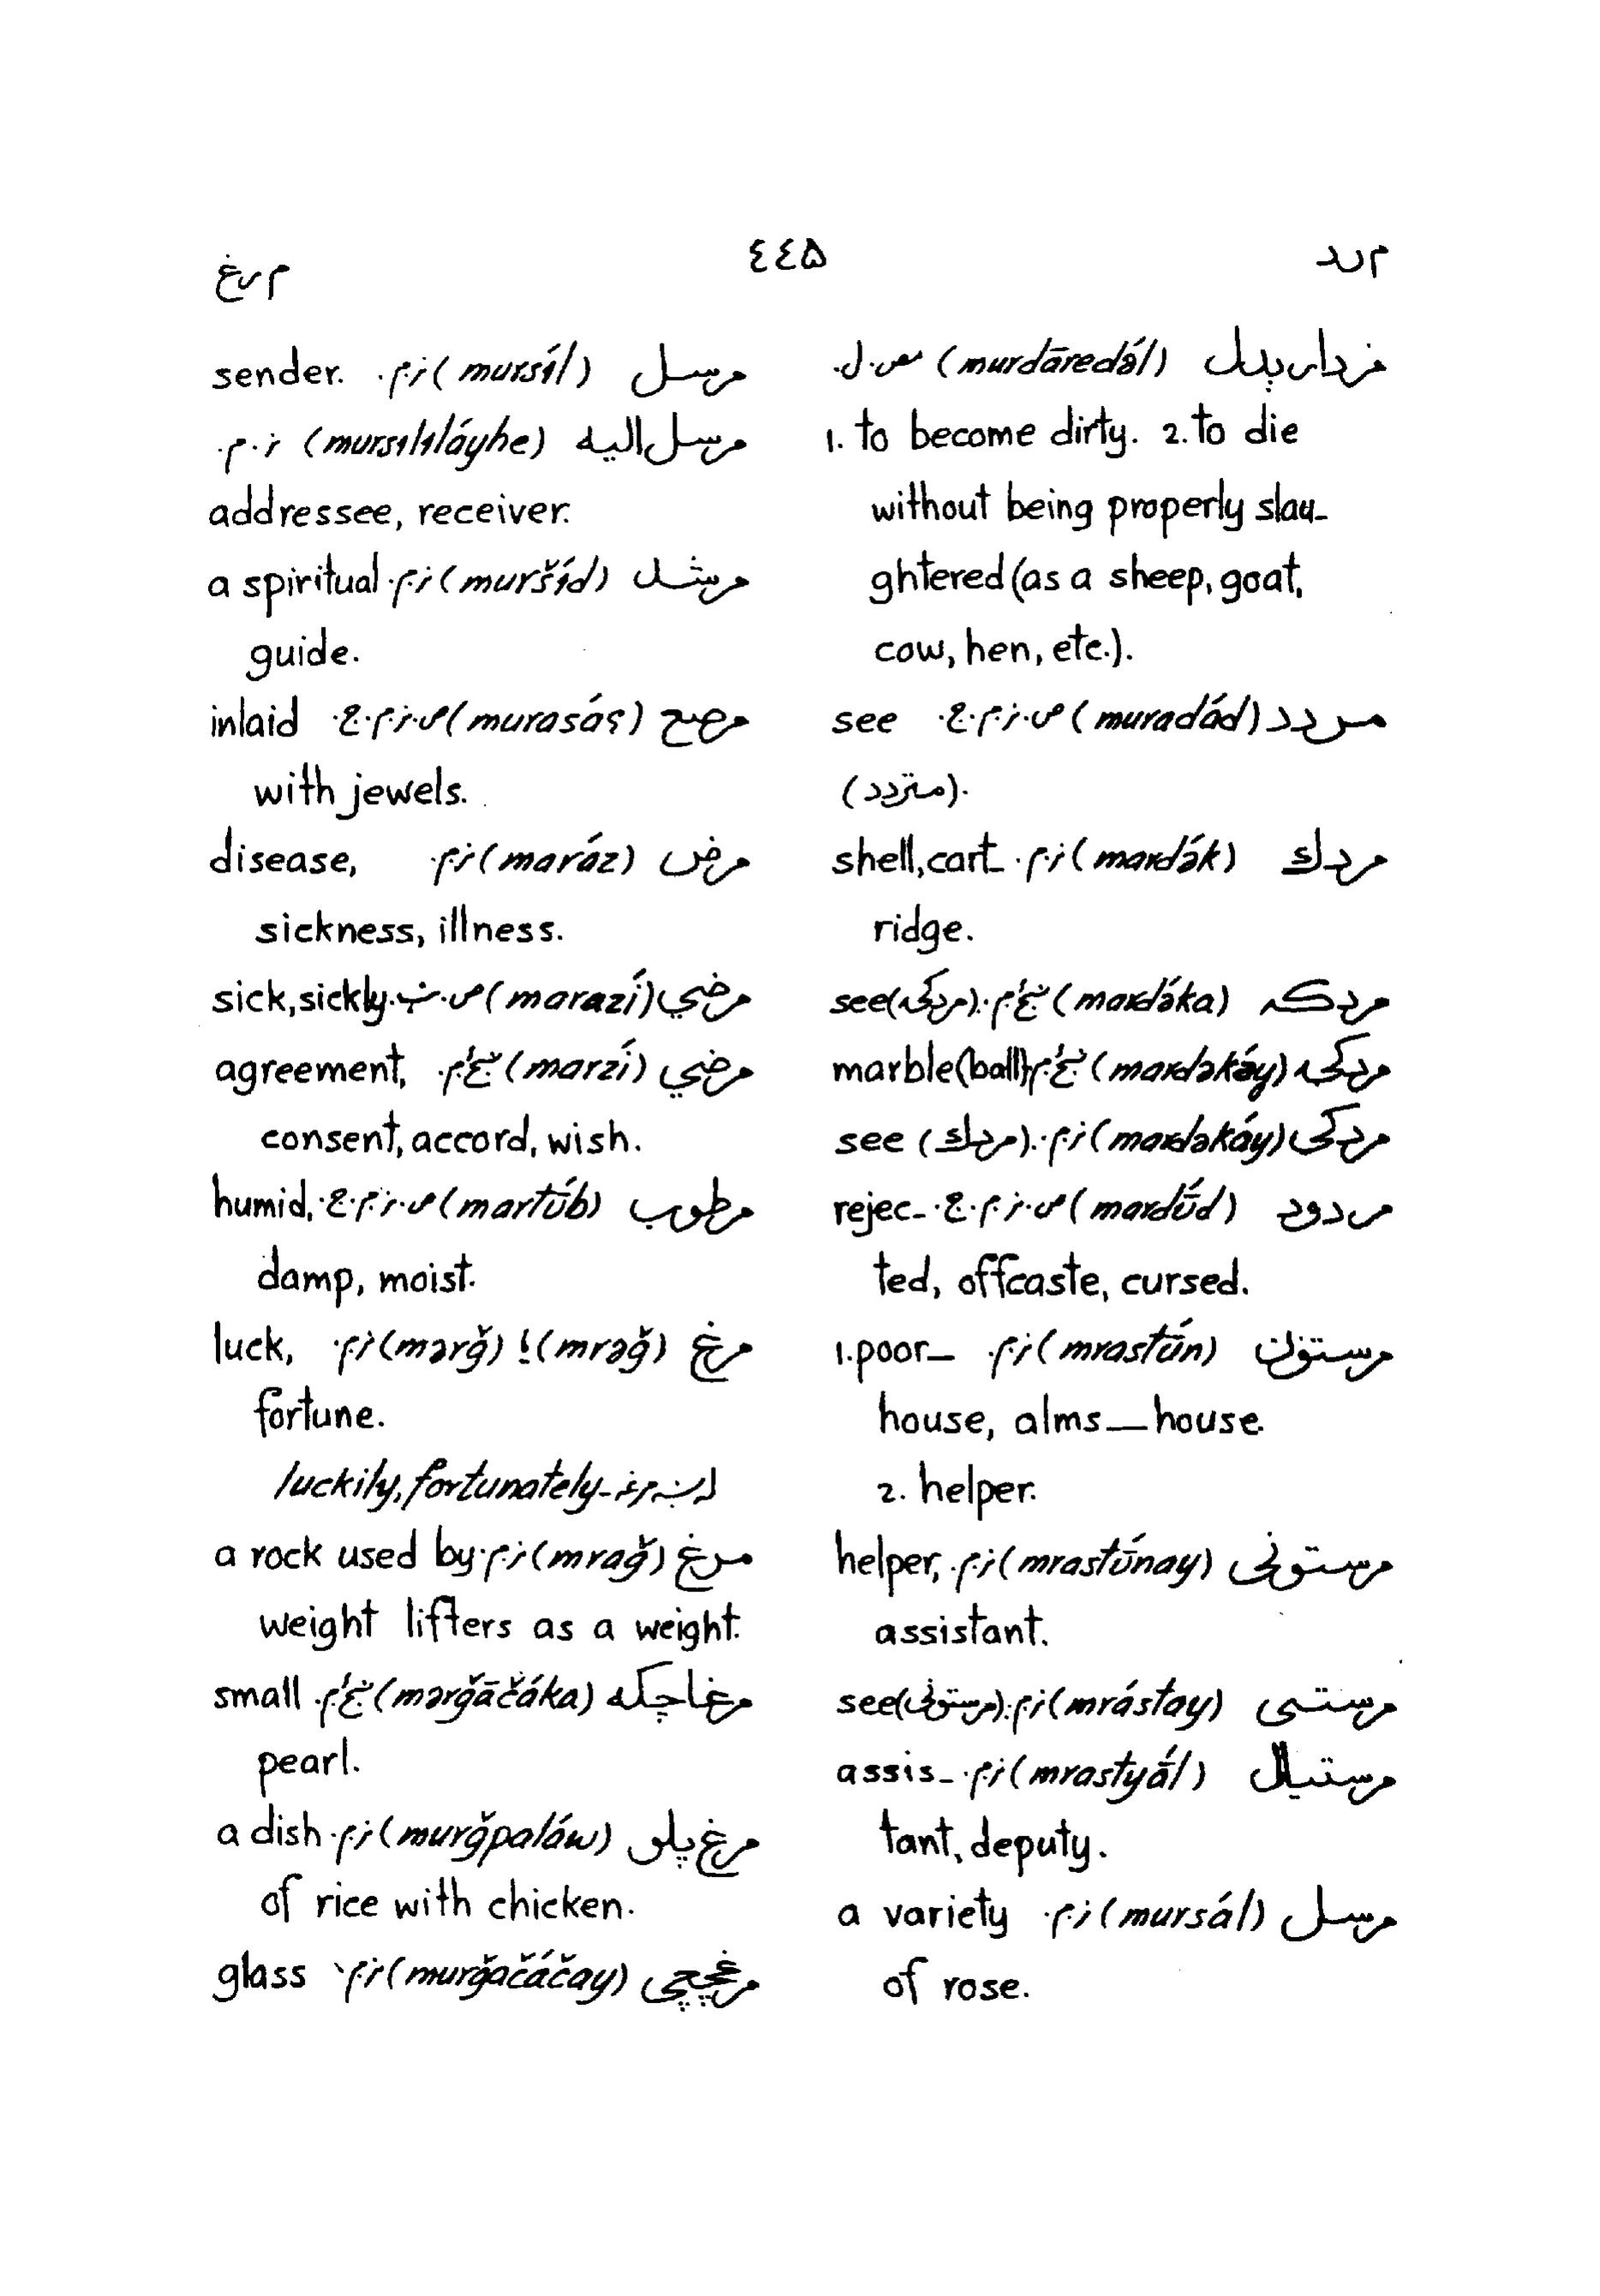 م رد
۴۴۵
م رغ
مردارېدل (murdāredə́l) مص.ل.
1. to become dirty. 2. to die
without being properly slau-
ghtered (as a sheep, goat,
cow, hen, etc.).
مردد (muradád) ص.ز.م.ع. see
(متردد).
مردك (mardák) ز.م. shell, cart-
ridge.
مردکه (mardáka) ښځ.م. see (مردکۍ).
مردکۍ (mardakə́y) ښځ.م. marble (ball)
مردکی (mardakáy) ز.م. see (مردك).
مردود (mardū́d) ص.ز.م.ع. rejec-
ted, offcaste, cursed.
مرستون (mrastū́n) ز.م. 1. poor-
house, alms-house.
2. helper.
مرستونی (mrastū́nay) ز.م. helper,
assistant.
مرستی (mrástay) ز.م. see (مرستونی).
مرستيال (mrastyā́l) ز.م. assis-
tant, deputy.
مرسل (mursál) ز.م. a variety
of rose.
مرسل (mursíl) ز.م. sender.
مرسل اليه (mursıhláyhe) ز.م.
addressee, receiver.
مرشد (muršíd) ز.م. a spiritual
guide.
مرصع (murasáς) ص.ز.م.ع. inlaid
with jewels.
مرض (maráz) ز.م. disease,
sickness, illness.
مرضي (marazí) ص. sick, sickly.
مرضي (marzí) ښځ.م. agreement,
consent, accord, wish.
مرطوب (martū́b) ص.ز.م.ع. humid,
damp, moist.
مرغ (mrəğ) !(mərğ) ز.م. luck,
fortune.
luckily, fortunately-
مرغ (mrağ) ز.م. a rock used by
weight lifters as a weight.
مرغاچکه (mərğāčáka) ښځ.م. small
pearl.
مرغ پلو (murğpaláw) ز.م. a dish
of rice with chicken.
مرغچچی (murğačáčay) ز.م. glass